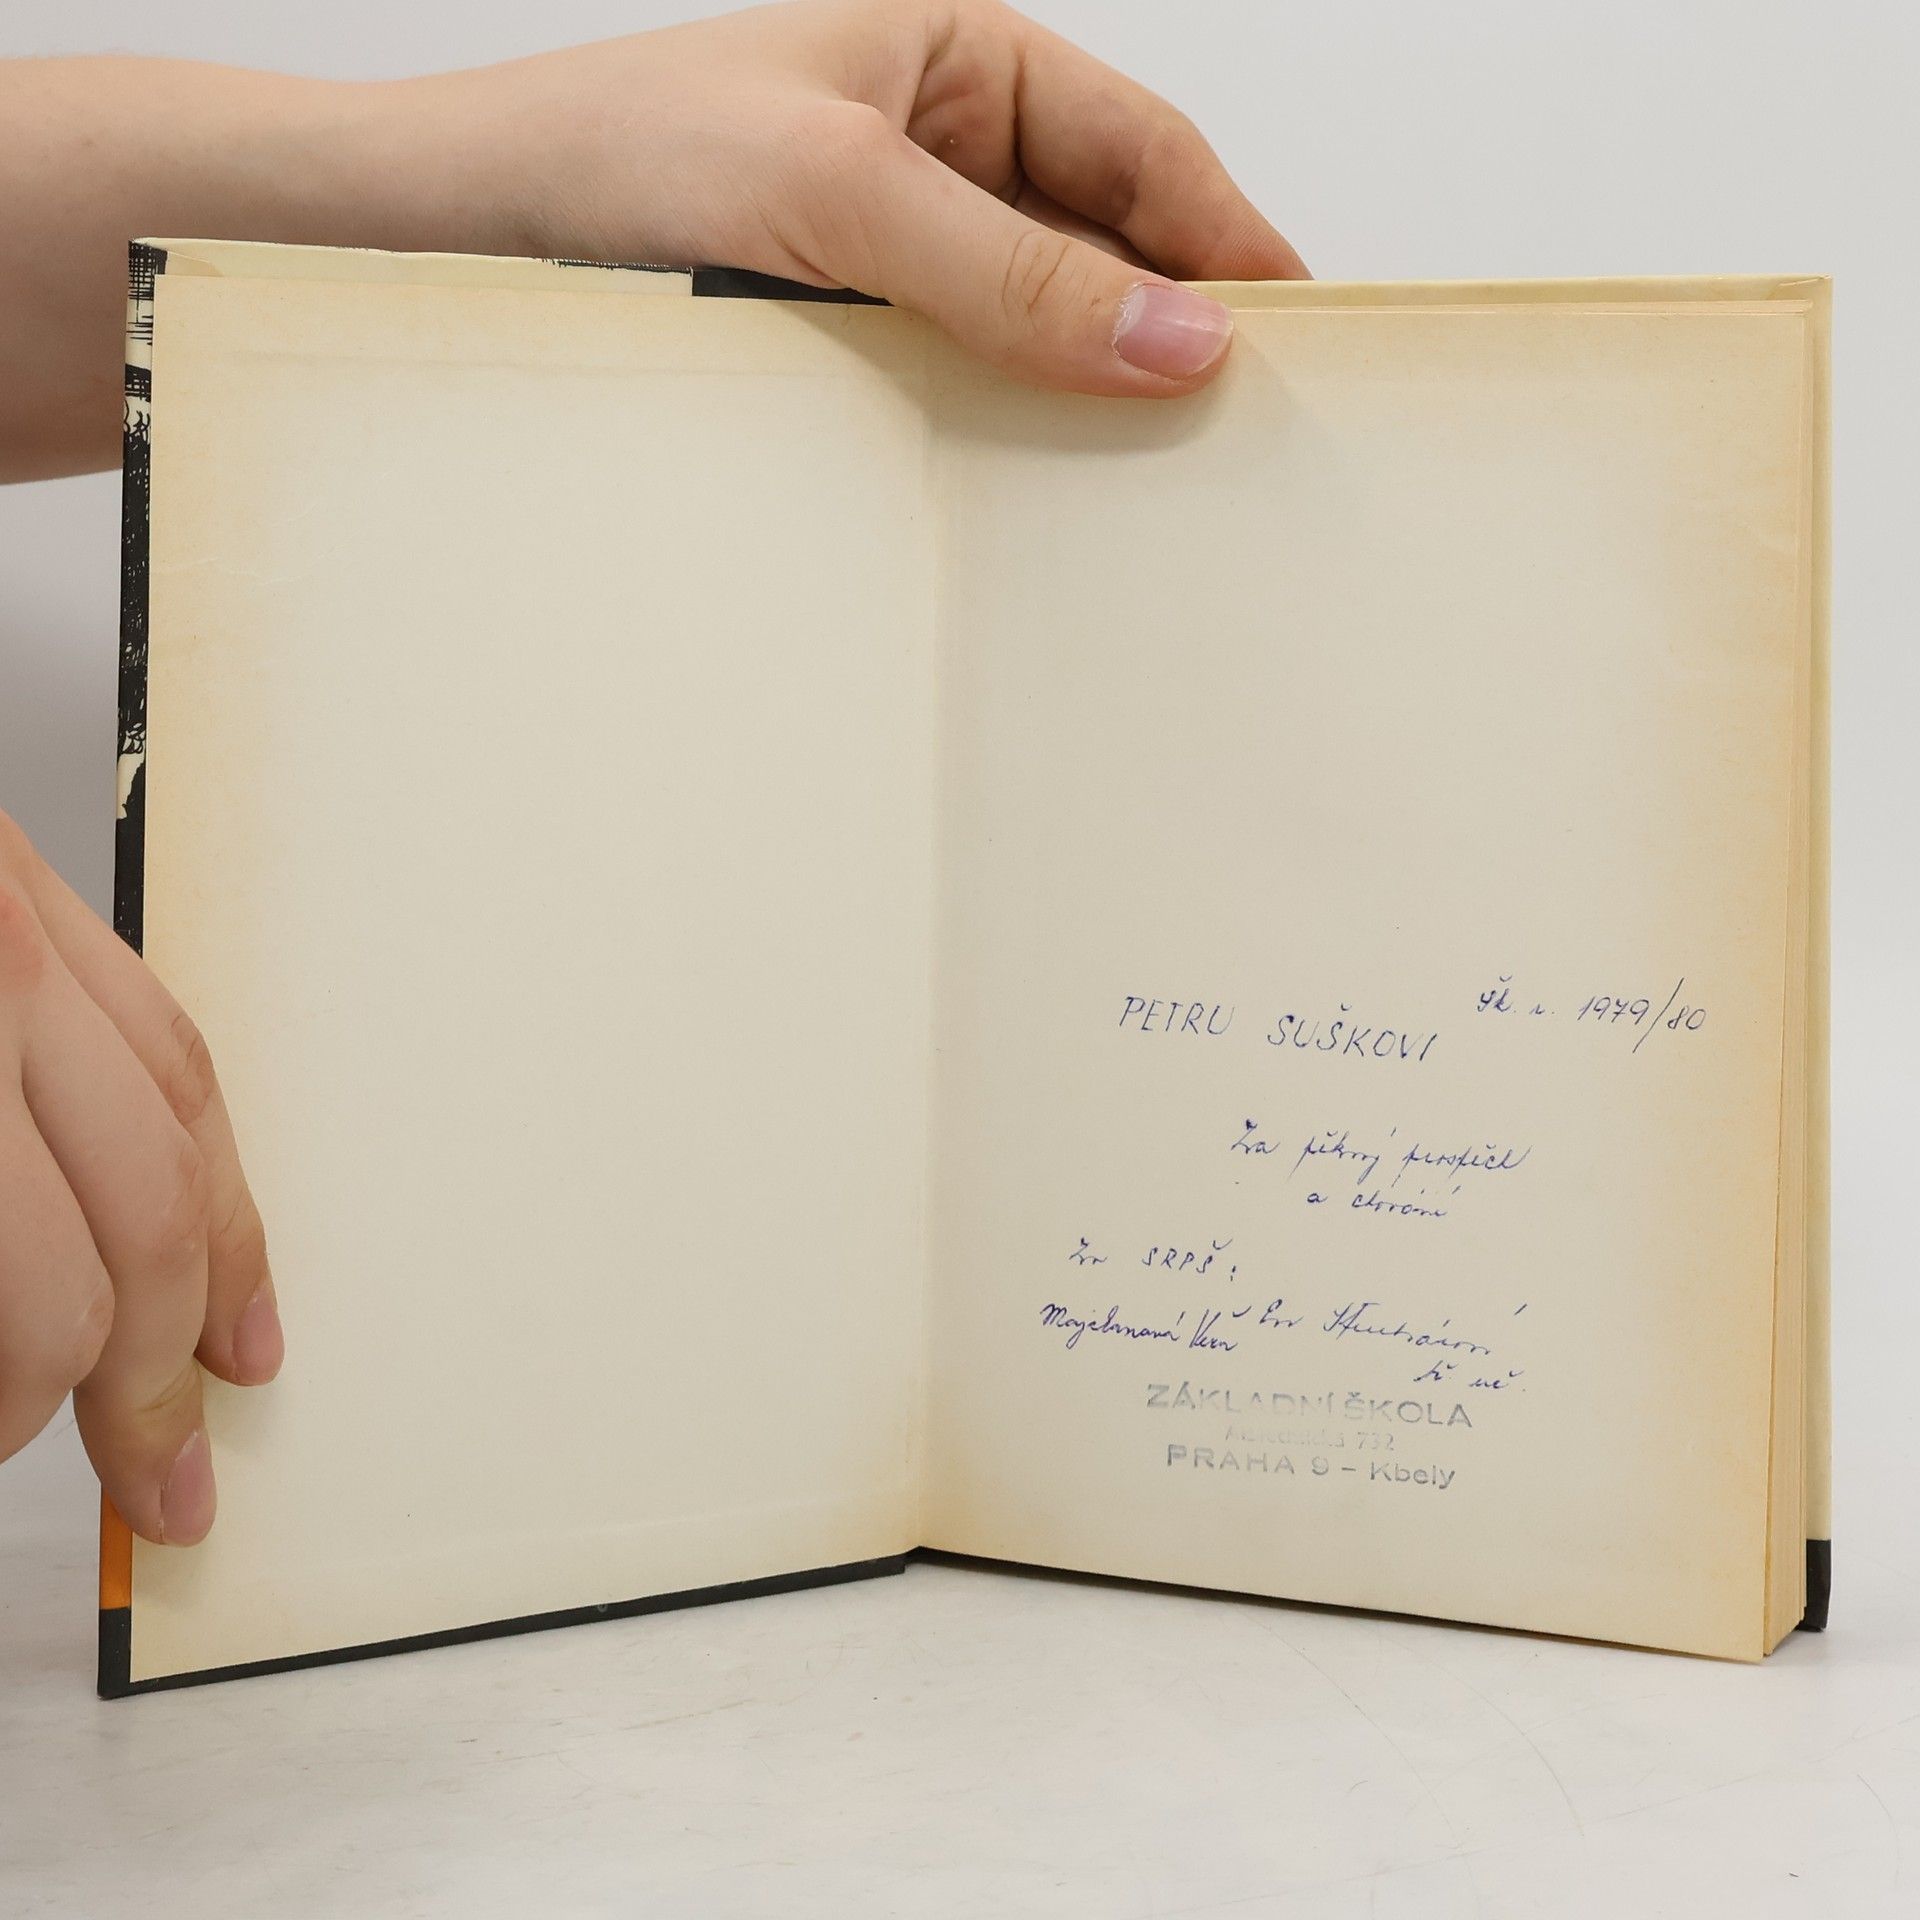 PETRU SUŠKOVI šk. r. 1979/80
Za pěkný prospěch
a chování
Za SRPŠ:
Majelanová Věra Eva
tř. uč.
ZÁKLADNÍ ŠKOLA
732
PRAHA 9 - Kbely